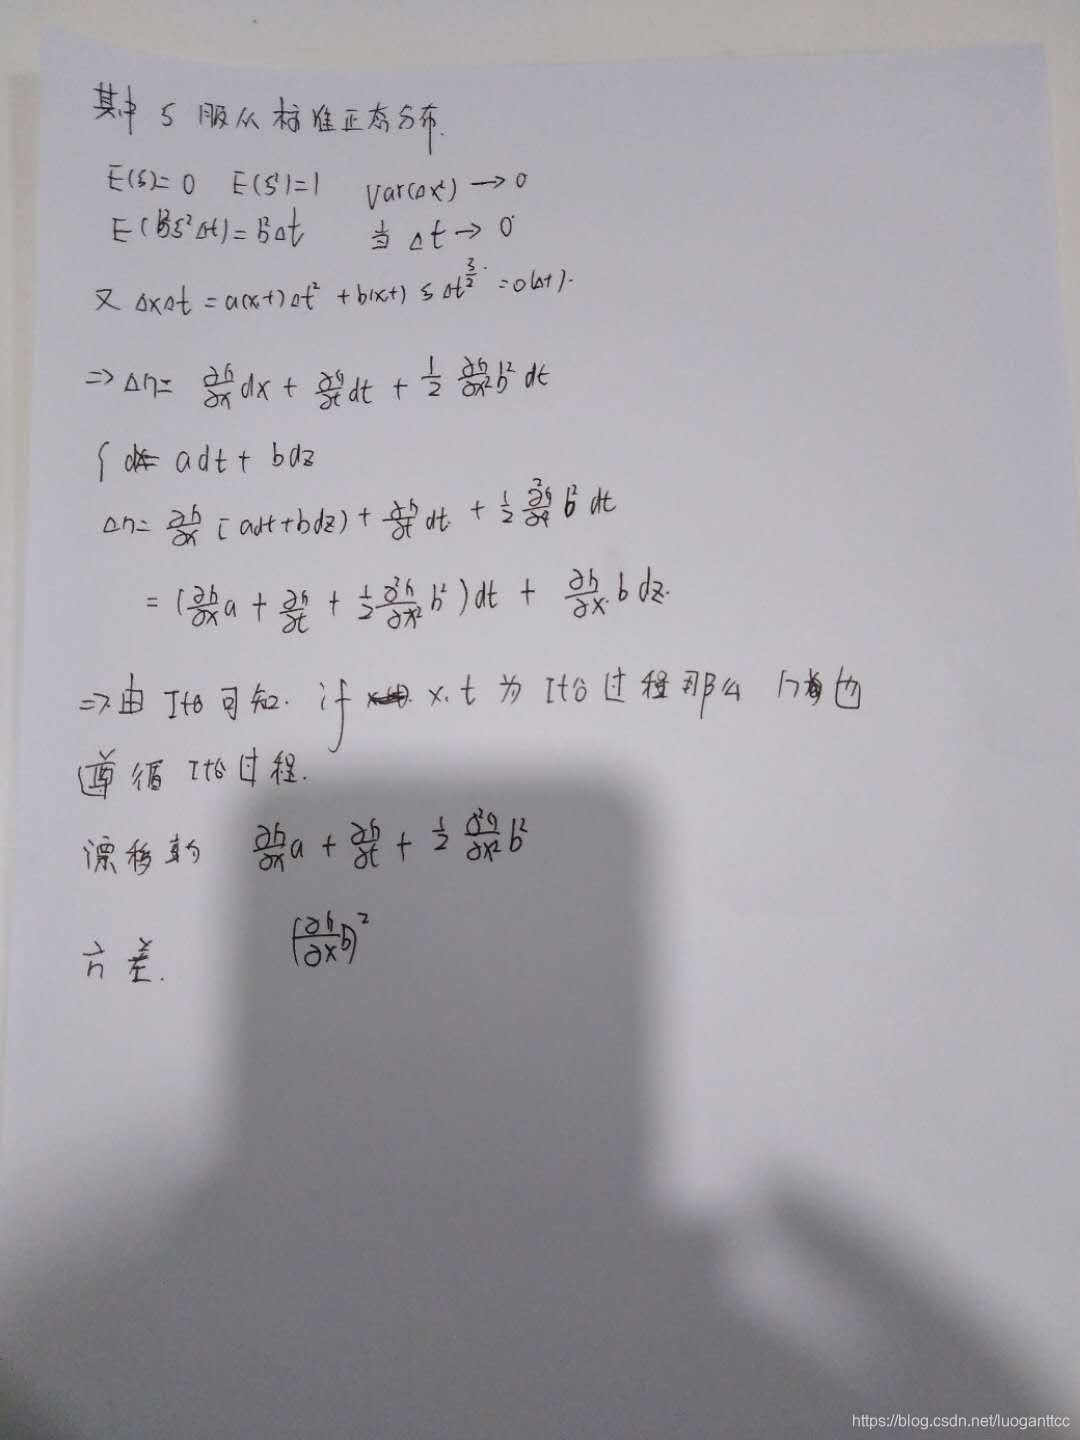 其中 S 服从标准正态分布.
E(S)=0 E(S²)=1 Var(Δx²) → 0
E(b²S²Δt)=b²Δt 当 Δt → 0
又 ΔxΔt = a(x,t)Δt² + b(x,t) S Δt^{3/2} = o(Δt).
=> Δh= ∂h/∂x dx + ∂h/∂t dt + 1/2 ∂h/∂x² b² dt
{ dx= adt + bdz
Δh= ∂h/∂x (adt+bdz) + ∂h/∂t dt + 1/2 b² dt
= (∂h/∂x a + ∂h/∂t + 1/2 ∂²h/∂x² b²)dt + ∂h/∂x b dz.
=> 由 Itô 可知. if x.t 为 Itô 过程 那么 h 也
遵循 Itô 过程.
漂移 ∂h/∂x a + ∂h/∂t + 1/2 ∂²h/∂x² b²
方差. (∂h/∂x b)²
https://blog.csdn.net/luoganttcc